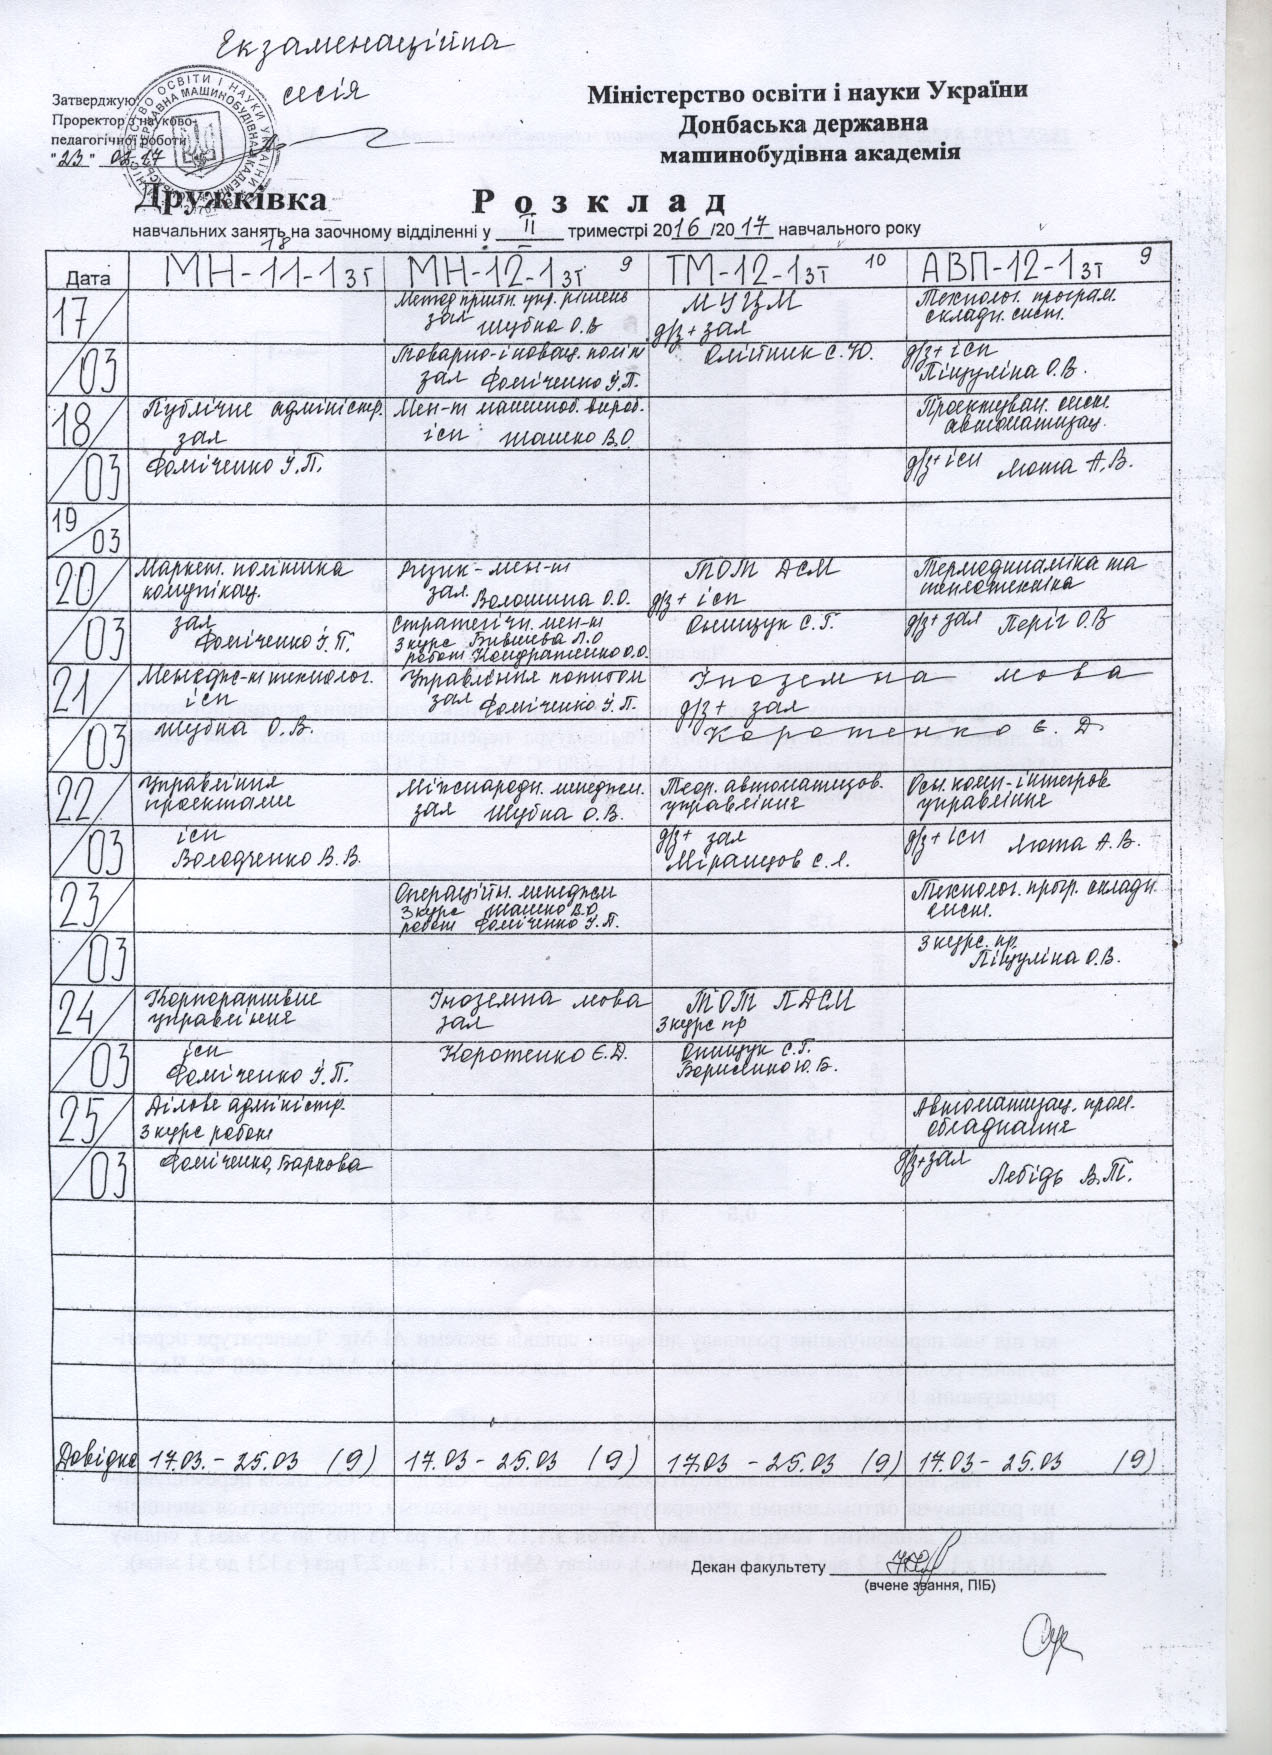 Екзаменаційна
сесія
Затверджую:
Проректор з науково-
педагогічної роботи
"23" 02.17
Міністерство освіти і науки України
Донбаська державна
машинобудівна академія
Дружківка
Р о з к л а д
навчальних занять на заочному відділенні у II триместрі 2016/2017 навчального року
Дата
МН-11-1зт 18
МН-12-1зт 9
ТМ-12-1зт 10
АВП-12-1зт 9
17/03
Метод прийн. упр. рішень
зал Шубна О.В
Товарно-іновац. політ
зал Фоміченко І.П.
МУЦМ
д/з + зал
Олійник С.Ю.
Технолог. програм.
складн. сист.
д/з + ісп
Піцуліна О.В.
18/03
Публічне адміністр.
зал
Фоміченко І.П.
Мен-т машиноб. вироб.
ісп Шашко В.О.
Проектуван. сист.
автоматизац.
д/з + ісп Люта А.В.
19/03
20/03
Маркет. політика
комунікац.
зал
Фоміченко І.П.
Ризик-мен-т
зал. Волошина О.О.
Стратегічн. мен-т
з курс
робот Кондратенко О.О.
ТОТ ДСМ
д/з + ісп
Онищук С.Г.
Термодинаміка та
теплотехніка
д/з + зал Періг О.В
21/03
Менедж-т технолог.
ісп
Шубна О.В.
Управління попитом
зал Фоміченко І.П.
Іноземна мова
д/з + зал
Коротенко Є.Д.
22/03
Управління
проектами
ісп
Володченко В.В.
Міжнародн. менеджм.
зал Шубна О.В.
Теор. автоматизов.
управління
д/з + зал
Міранцов С.Л.
Осн. комп-інтегров
управління
д/з + ісп Люта А.В.
23/03
Операційн. менеджм
з курс Шашко В.О.
робот Фоміченко І.П.
Технолог. прогр. складн.
сист.
з курс. пр.
Піцуліна О.В.
24/03
Корпоративне
управління
ісп
Фоміченко І.П.
Іноземна мова
зал
Коротенко Є.Д.
ТОТ ПДСМ
з курс пр
Онищук С.Г.
25/03
Ділове адміністр.
з курс робот
Фоміченко, Баркова
Автоматизац. пром.
обладнання
д/з + зал
Лебідь В.Т.
Довідка
17.03. - 25.03 (9)
17.03 - 25.03 (9)
17.03 - 25.03 (9)
17.03 - 25.03 (9)
Декан факультету
(вчене звання, ПІБ)